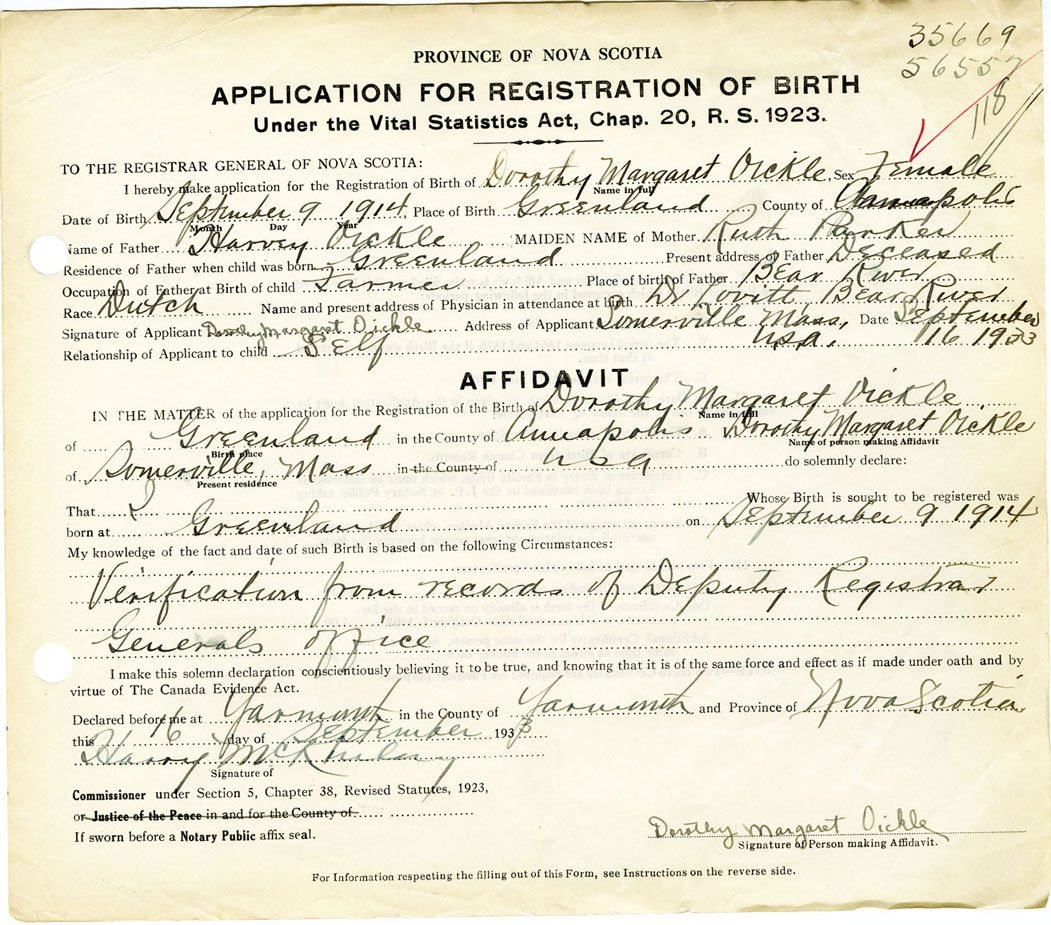 35669
56557
118
PROVINCE OF NOVA SCOTIA
APPLICATION FOR REGISTRATION OF BIRTH
Under the Vital Statistics Act, Chap. 20, R. S. 1923.
TO THE REGISTRAR GENERAL OF NOVA SCOTIA:
I hereby make application for the Registration of Birth of Dorothy Margaret Oickle, Sex Female
Name in full
Date of Birth September 9 1914 Place of Birth Greenland County of Annapolis
Month Day Year
Name of Father Harvey Oickle MAIDEN NAME of Mother Ruth Parker
Residence of Father when child was born Greenland Present address of Father Deceased
Occupation of Father at Birth of child Farmer Place of birth of Father Bear River
Race Dutch Name and present address of Physician in attendance at birth Dr Lovitt, Bear River
Signature of Applicant Dorothy Margaret Oickle Address of Applicant Somerville Mass, Date September
Relationship of Applicant to child Self USA, 16 1933
AFFIDAVIT
IN THE MATTER of the application for the Registration of the Birth of Dorothy Margaret Oickle
Name in full
of Greenland in the County of Annapolis Dorothy Margaret Oickle
Birth place Name of person making Affidavit
of Somerville, Mass in the County of USA do solemnly declare:
Present residence
That I Whose Birth is sought to be registered was
born at Greenland on September 9 1914
My knowledge of the fact and date of such Birth is based on the following Circumstances:
Verification from records of Deputy Registrar
Generals office
I make this solemn declaration conscientiously believing it to be true, and knowing that it is of the same force and effect as if made under oath and by
virtue of The Canada Evidence Act.
Declared before me at Yarmouth in the County of Yarmouth and Province of Nova Scotia
this 16 day of September 1933
Harry
Signature of
Commissioner under Section 5, Chapter 38, Revised Statutes, 1923,
or Justice of the Peace in and for the County of
If sworn before a Notary Public affix seal.
Dorothy Margaret Oickle
Signature of Person making Affidavit.
For Information respecting the filling out of this Form, see Instructions on the reverse side.